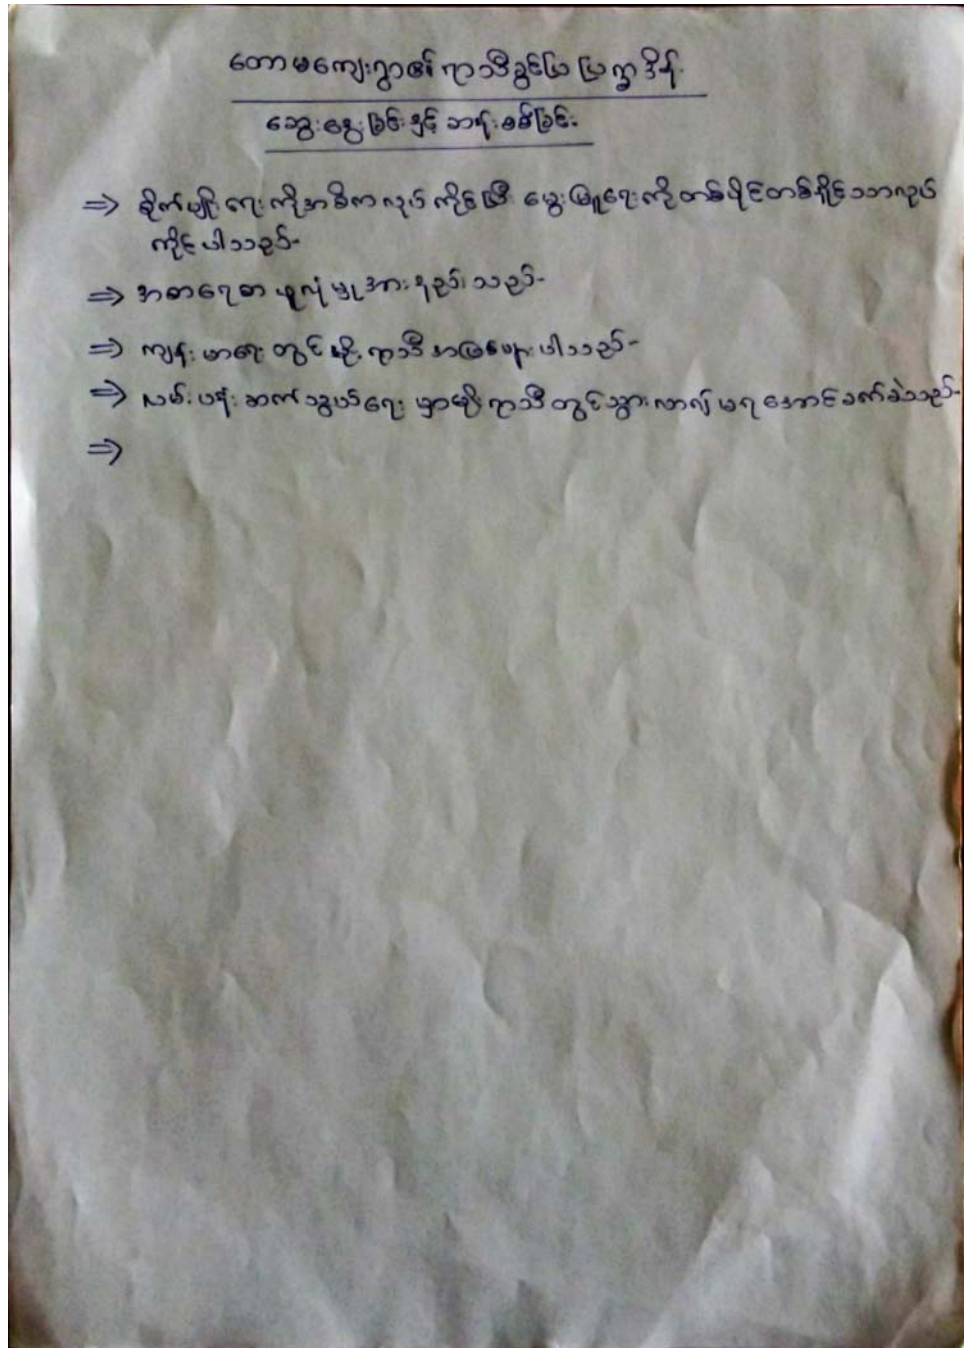 တောမကျေးရွာ၏ ရာသီခွင်ပြ ပြက္ခဒိန်
ဆွေးနွေးခြင်းနှင့် ဆန်းစစ်ခြင်း
⇒ စိုက်ပျိုးရေးကိုအဓိကလုပ်ကိုင်ပြီး မွေးမြူရေးကိုတစ်ပိုင်တစ်နိုင်သာလုပ်
ကိုင်ပါသည်-
⇒ အစာရေစာ ဖူလုံမှုအားနည်းသည်-
⇒ ကျန်းမာရေးတွင်မိုးရာသီအဖြစ်များပါသည်-
⇒ လမ်းပန်းဆက်သွယ်ရေးမှာမိုးရာသီတွင်သွားလာ၍မရအောင်ခက်ခဲသည်-
⇒